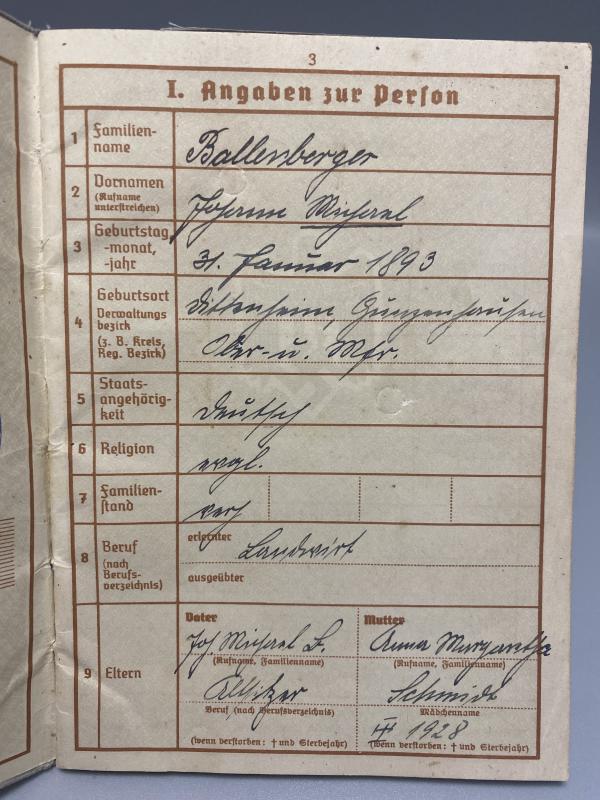 3
I. Angaben zur Person
1 Familien-
name
Ballenberger
2 Vornamen
(Rufname
unterstreichen)
Johann Michael
3 Geburtstag
-monat,
-jahr
31. Januar 1893
4 Geburtsort
Verwaltungs
bezirk
(z. B. Kreis,
Reg. Bezirk)
Dittenheim, Gunzenhausen
Ober- u. Mfr.
5 Staats-
angehörig-
keit
deutsch
6 Religion
evgl.
7 Familien-
stand
verh
8 Beruf
(nach
Berufs-
verzeichnis)
erlernter Landwirt
ausgeübter
9 Eltern
Vater
Joh. Michael B.
(Rufname, Familienname)
(Beruf (nach Berufsverzeichnis)
(wenn verstorben: † und Sterbejahr)
Mutter
Anna Margaretha
(Rufname, Familienname)
Schmidt
Mädchenname
1928
(wenn verstorben: † und Sterbejahr)